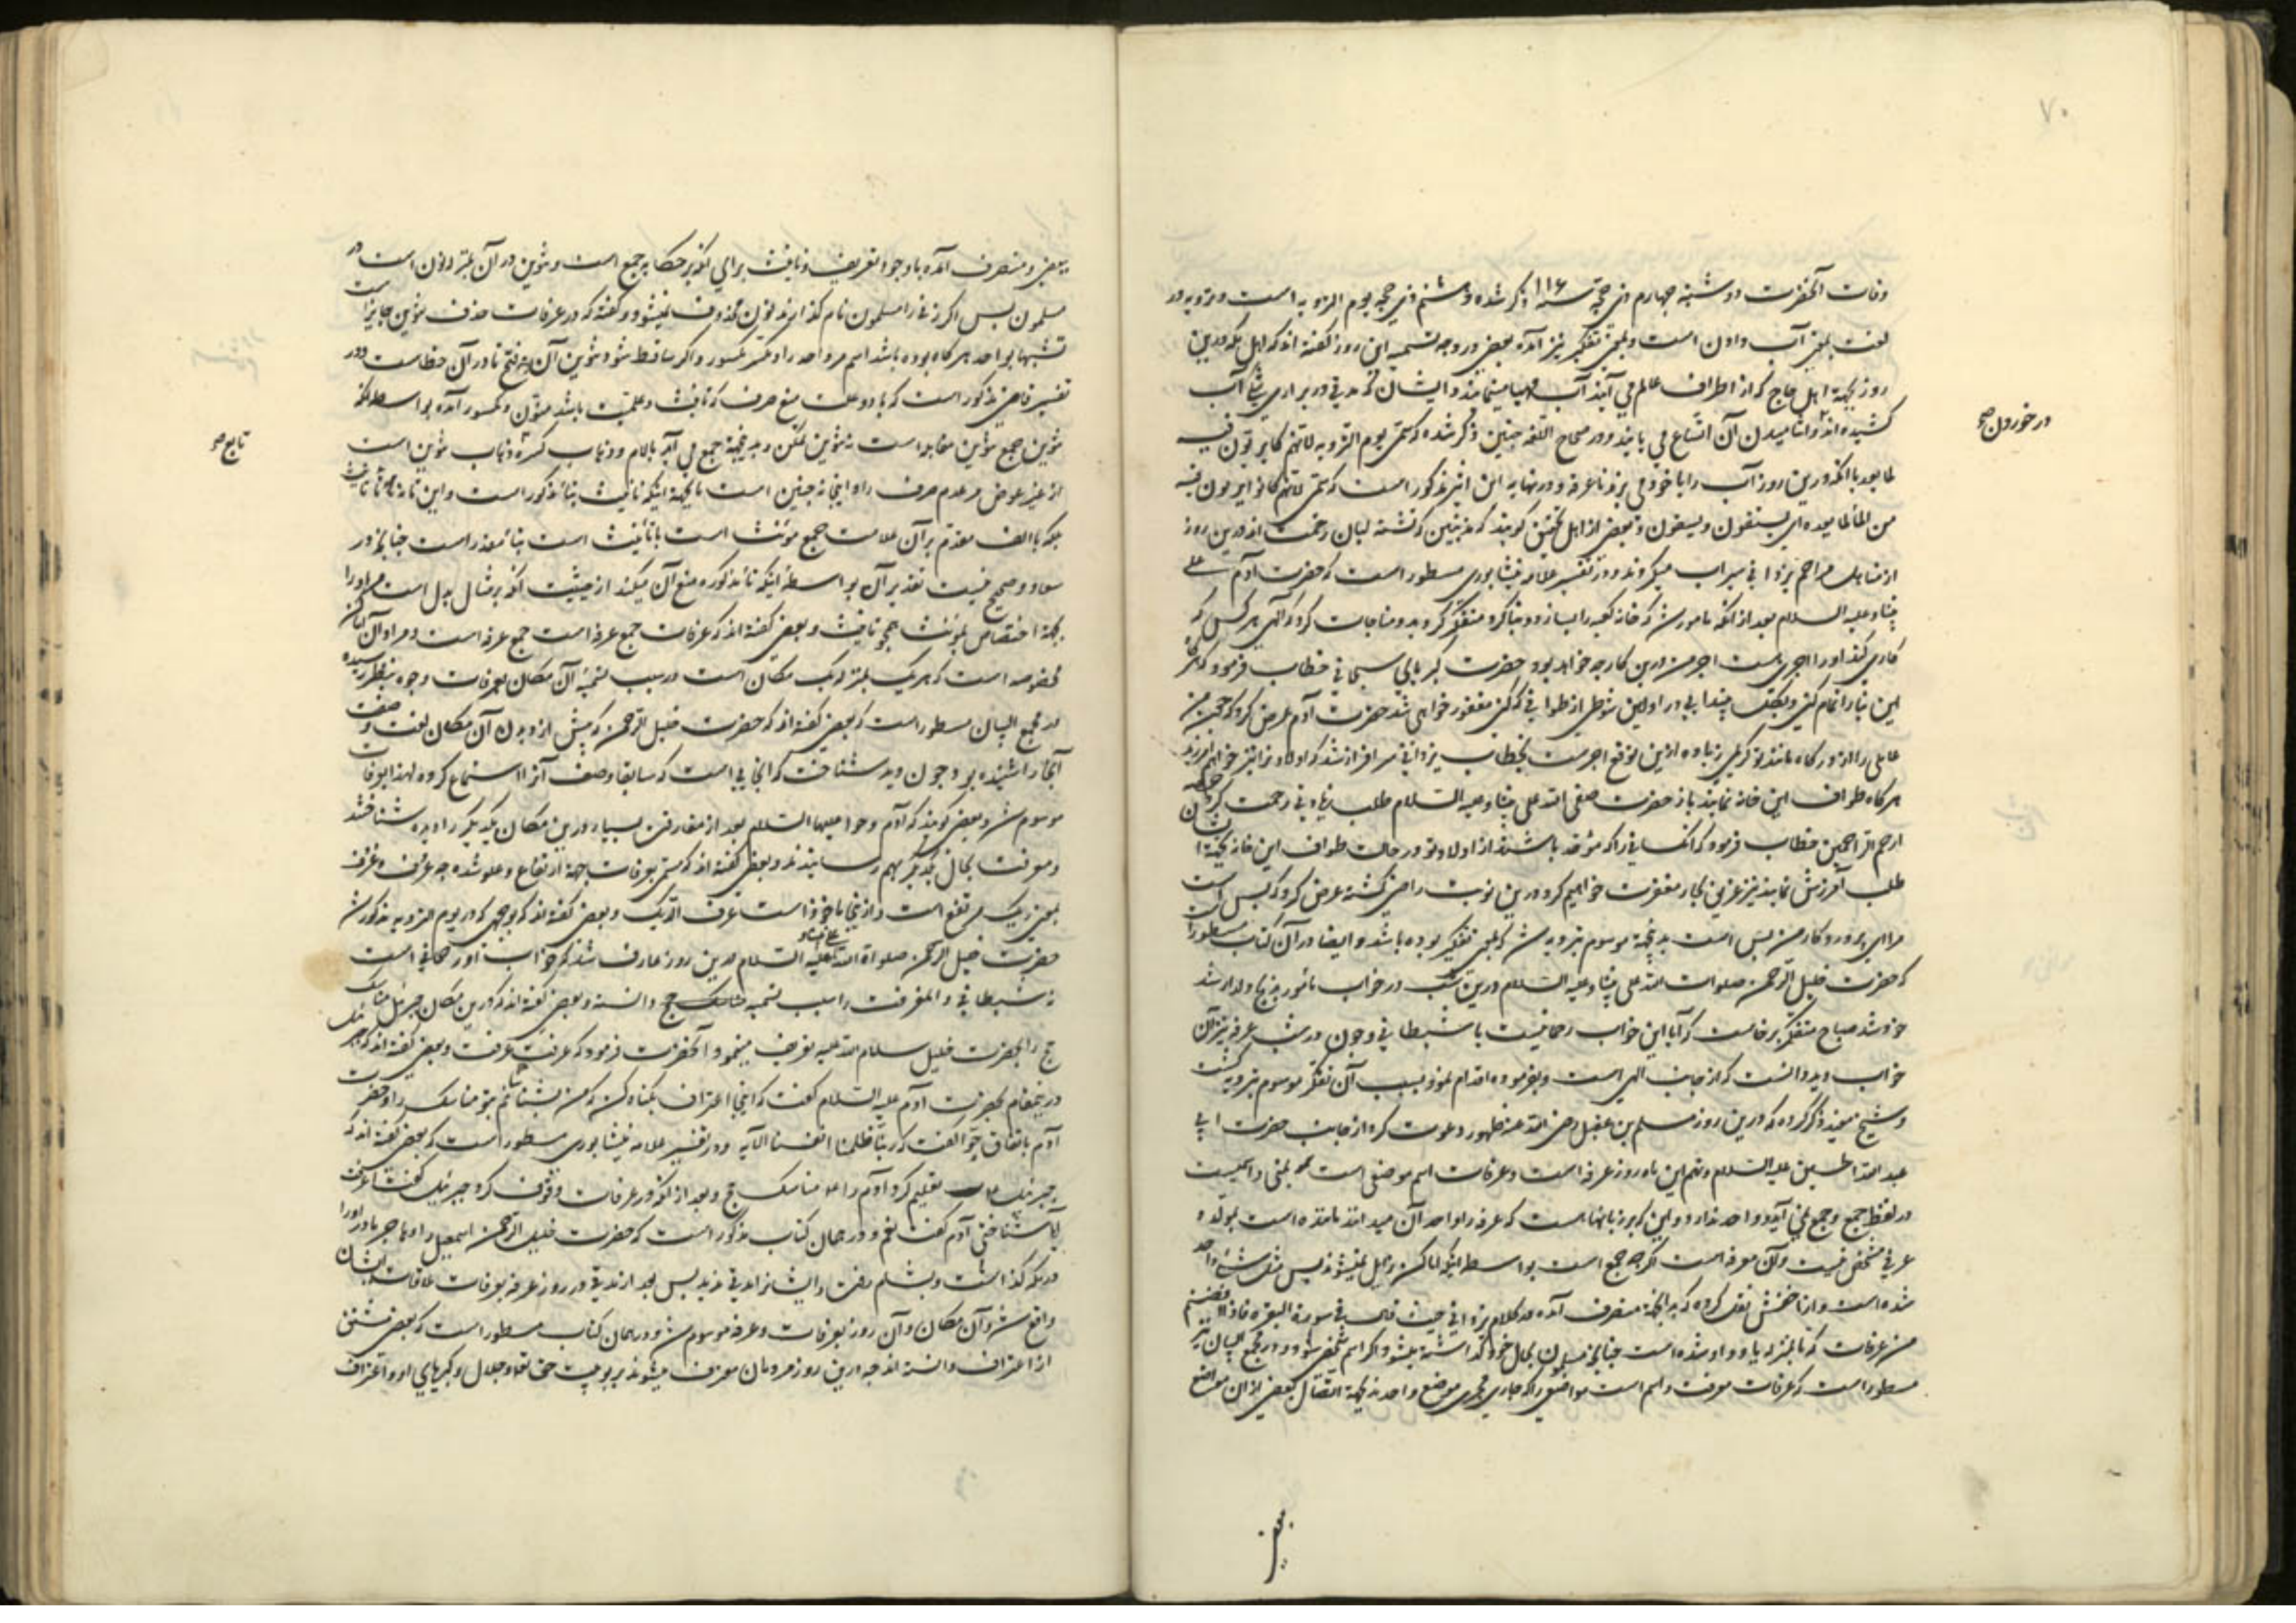 ۷۰
وفات آنحضرت دوشنبه چهارم ذی حجه سنه ۱۱۶ ذکر شده و هشتم ذی حجه یوم الترویه است و ترویه در
لغت بمعنی آب دادن است و بمعنی تفکیر نیز آمده بعضی در وجه تسمیه این روز گفته اند که اهل مکه درین
روز بجهة اهل حاج که از اطراف عالم می آیند آب مهیا مینمایند و ایشان که مدتی در براری
کشیده اند و آشامیدن آن اتساع می یابند و در صحاح اللغه چنین ذکر شده که سمی یوم الترویه لانهم کانوا یرتوون فیه
در خوردن صح
لما بعد با آنکه درین روز آب را با خود می برند تا عرفه و در نهایه ابن اثیر مذکور است که سمی لانهم کانوا یرتوون فیه
من الماء لما بعده ای یستقون و یسقون و بعضی از اهل تحقیق گویند که مذنبین که تشنه لبان رحمت اند درین روز
از مناهل مراحم یزدانی سیراب میگردند و در تفسیر علامه نیشابوری مسطور است که حضرت آدم علی
نبینا و علیه السلام بعد از آنکه مامور شد که خانه کعبه را بسازد و بنا کرد متفکر گردید و مناجات کرد که الهی هر کس که
کاری کند او را اجری هست اجر من درین کار چه خواهد بود حضرت کبریایی سبحانی خطاب فرمود که هرگاه
این بنا را تمام کنی در اولین شوطی از طوافی که کنی مغفور خواهی شد حضرت آدم عرض کرد که چون من
عاملی را از درگاه مانند تو کریمی زیاده ازین توقع اجرست بخطاب یزدانی سرافراز شد که اولاد ترا نیز خواهم آمرزید
هرگاه طواف این خانه نمایند باز حضرت صفی الله علی نبینا و علیه السلام طلب زیادتی رحمت کرد
ارحم الراحمین خطاب فرمود که آنکسانی را که موحد باشند از اولاد تو در حالت طواف این خانه بجهة ایشان
طلب آمرزش نمایند نیز غریق بحار مغفرت خواهیم کرد درین نوبت راضی گشته عرض کرد که بس است
مرا ای پروردگار من بس است بدینجهة موسوم بترویه شد که بمعنی تفکیر بوده باشد و ایضا در آن کتاب مسطور است
که حضرت خلیل الرحمن صلوات الله علی نبینا و علیه السلام درین شب در خواب مأمور بذبح ولد ارشد
خود شد صباح متفکر برخاست که آیا این خواب رحمانیست یا شیطانی و چون در شب عرفه نیز آن
خواب دید دانست که از جانب الهی است و بفرموده اقدام نمود و بسبب آن تفکر موسوم بترویه گشت
و شیخ مفید ذکر کرده که درین روز مسلم بن عقیل رضی الله عنه ظهور دعوت کرد از جانب حضرت ابی
عبد الله الحسین علیه السلام و نهم این ماه روز عرفه است و عرفات اسم موضعی است بمنی و اسمیست
در لفظ جمع و جمع نمی آید و واحد ندارد و این که بر زبانهاست که عرفه را واحد آن میدانند نامده است مولده
عربی محض نیست و آن معرفه است اگرچه جمع است بواسطه اینکه اماکن زایل نمیشوند پس مثل شیء واحد
شده است و از اخفش نقل کرده که بدانجهة منصرف آمده در کلام یزدانی حیث قال فی سورة البقره فاذا افضتم
من عرفات که تا بمنزله یا و واو شده است چنانچه مسلمون بحال خود گذاشته میشود اگر اسم شخصی شود و در مجمع البیان نیز
مسطور است که عرفات معرفت و اسم است مواضعی را که جاری مجری موضع واحدند بجهة اتصال بعضی از ان مواضع
ببعضی
ببعضی و منصرف آمده با وجود تعریف و تانیث برای آنکه بر حکایه جمع است و تنوین در آن بمنزله نون است در
مسلمون پس اگر زنی را مسلمون نام گذارند نون محذوف نمیشود و گفته که در عرفات حذف تنوین جایز است
تشبیها بواحد هرگاه بوده باشد اسم مر واحد را و مکسور و اگر ساقط شود تنوین آن و فتح تا در آن خطاست و در
تفسیر قاضی مذکور است که با دو علت منع صرف که تانیث و علمیت باشد منون و مکسور آمده بواسطه آنکه
تنوین جمع تنوین مقابله است نه تنوین تمکن و بدینجهة جمع می آید با لام و ذهاب کسره تابع ذهاب تنوین است
تابع صح
از غیر عوض مر عدم صرف را و اینجا نه چنین است یا بجهة اینکه تانیث بتاء مذکور است و این تا نه تاء تانیث
بلکه با الف مقدم بر آن علامت جمع مونث است یا تانیث است بتاء مقدر است چنانچه در
سعاد و صحیح نیست تقدیر آن بواسطه اینکه تاء مذکوره منع آن میکند از حیثیت آنکه بر مثال بدل است مر او را
بجهة اختصاص بمونث همچو تانیث و بعضی گفته اند که عرفات جمع عرفه است و مراد آن اماکن
مخصوصه است که هر یک بمنزله یک مکان است در سبب تسمیه آن مکان بعرفات وجوه بنظر رسیده
در مجمع البیان مسطور است که بعضی گفته اند که حضرت خلیل الرحمن که پیش از دیدن آن مکان نعت و صفت
آنجا را شنیده بود چون دید شناخت که آنجایی است که سابقا وصف آنرا استماع کرده لهذا بعرفات
موسوم شد و بعضی گویند که آدم و حوا علیهما السلام بعد از مفارقت بسیار درین مکان یکدیگر را دیده شناختند
و معرفت بحال یکدیگر بهم رسانیدند و بعضی گفته اند که سمی بعرفات بجهة ارتفاع و علو شده چه عرف
بمعنی ریک مرتفع است و ازینجا ماخوذ است عرف الدیک و بعضی گفته اند که بوجهی که در یوم الترویه مذکور شد
حضرت خلیل الرحمن صلواة الله علی نبینا و علیه السلام درین روز عارف شد که خواب او رحمانی است
نه شیطانی و المعرفت را سبب تسمیه دانسته و بعضی گفته اند که درین مکان جبرئیل مناسک
حج را بحضرت خلیل سلام الله علیه تعریف مینمود و آنحضرت فرمود که عرفت عرفت و بعضی گفته اند که جبرئیل
درینمقام بحضرت آدم علیه السلام گفت که اینجا اعتراف بگناه کن که من بشناسانم بتو مناسک را و حضرت
آدم باتفاق حوا گفت که ربنا ظلمنا انفسنا الآیه و در تفسیر علامه نیشابوری مسطور است که بعضی گفته اند که
جبرئیل تعلیم کرد آدم را مناسک حج و بعد از آنکه در عرفات وقوف کرد جبرئیل گفت اعرفت
آیا شناختی آدم گفت نعم و در همان کتاب مذکور است که حضرت خلیل الرحمن اسمعیل را و هاجر مادر او را
در مکه گذاشت و بشام رفت و ایشانرا مدتی ندید پس بعد از مدتی در روز عرفه بعرفات ملاقات ایشان
واقع شد و آن مکان و آن روز بعرفات و عرفه موسوم شد و در همان کتاب مسطور است که بعضی مشتق
از اعتراف دانسته اند چه درین روز مردمان معترف میشوند بربوبیت حق تعالی و جلال و کبریای او و اعتراف